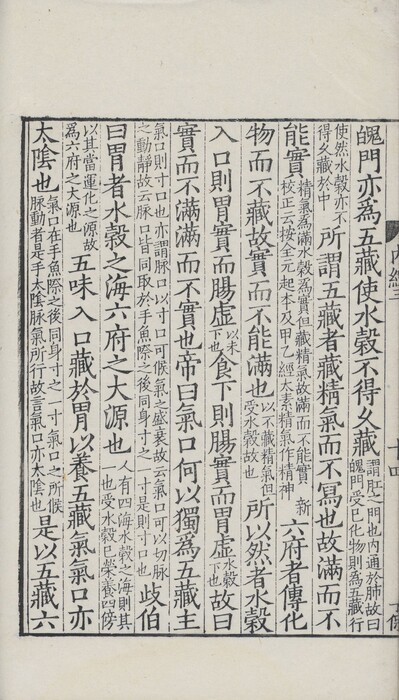 魄門亦爲五藏使水穀不得久藏謂肛之門也內通於肺故曰魄門受已化物則爲五藏行
使然水穀亦不得久藏於中所謂五藏者藏精氣而不寫也故滿而不
能實精氣爲滿水穀爲實但藏精氣故滿而不能實新校正云按全元起本及甲乙經太素精氣作精神六府者傳化
物而不藏故實而不能滿也以不藏精氣但受水穀故也所以然者水穀
入口則胃實而腸虛以未下也食下則腸實而胃虛水穀下也故曰
實而不滿滿而不實也帝曰氣口何以獨爲五藏主
氣口則寸口也亦謂脉口以寸口可候氣之盛衰故云氣口可以切脉之動靜故云脉口皆同取於手魚際之後同身寸之一寸是則寸口也歧伯
曰胃者水穀之海六府之大源也人有四海水穀之海則其一也受水穀已榮養四傍
以其當運化之源故爲六府之大源也五味入口藏於胃以養五藏氣氣口亦
太陰也氣口在手魚際之後同身寸之一寸氣口之所候脉動者是手太陰脉氣所行故言氣口亦太陰也是以五藏六
內經三
十四